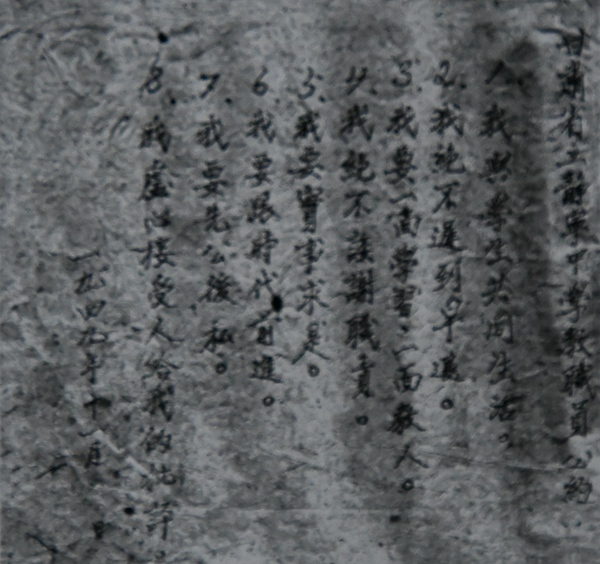 甘肅省立靜寧中學教職員公約
1. 我與學生共同生活。
2. 我絕不遲到。早退。
3. 我要一面學習;一面教人。
4. 我絕不諉謝職責。
5. 我要實事求是。
6. 我要跟時代前進。
7. 我要先公後私。
8. 我虛心接受人給我的批評。
一九四九年十一月